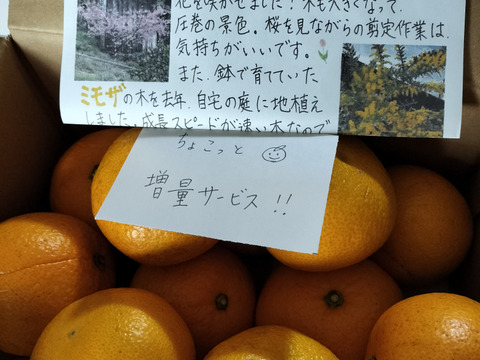 花を咲かせました！木も大きくなって、
圧巻の景色。桜を見ながらの剪定作業は、
気持ちがいいです。
また、鉢で育てていた
ミモザの木を去年、自宅の庭に地植え
しました。成長スピードが速い木なので
ちょこっと
増量サービス!!